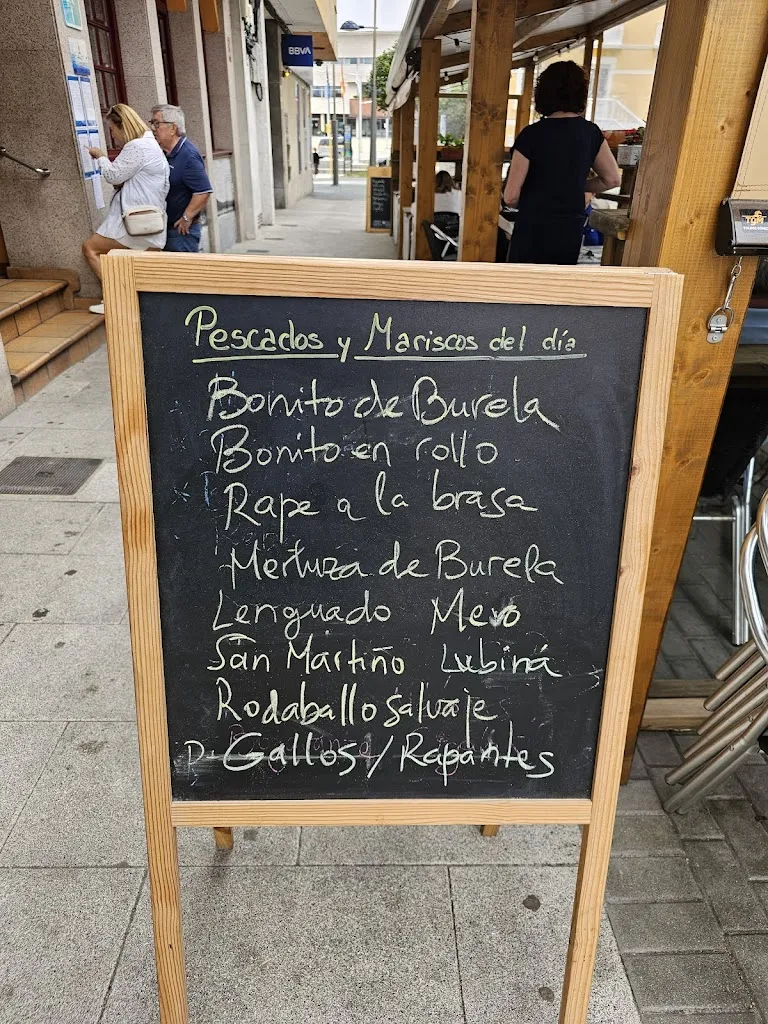 BBVA
Pescados y Mariscos del día
Bonito de Burela
Bonito en rollo
Rape a la brasa
Merluza de Burela
Lenguado Mero
San Martiño Lubina
Rodaballo salvaje
Gallos / Rapantes